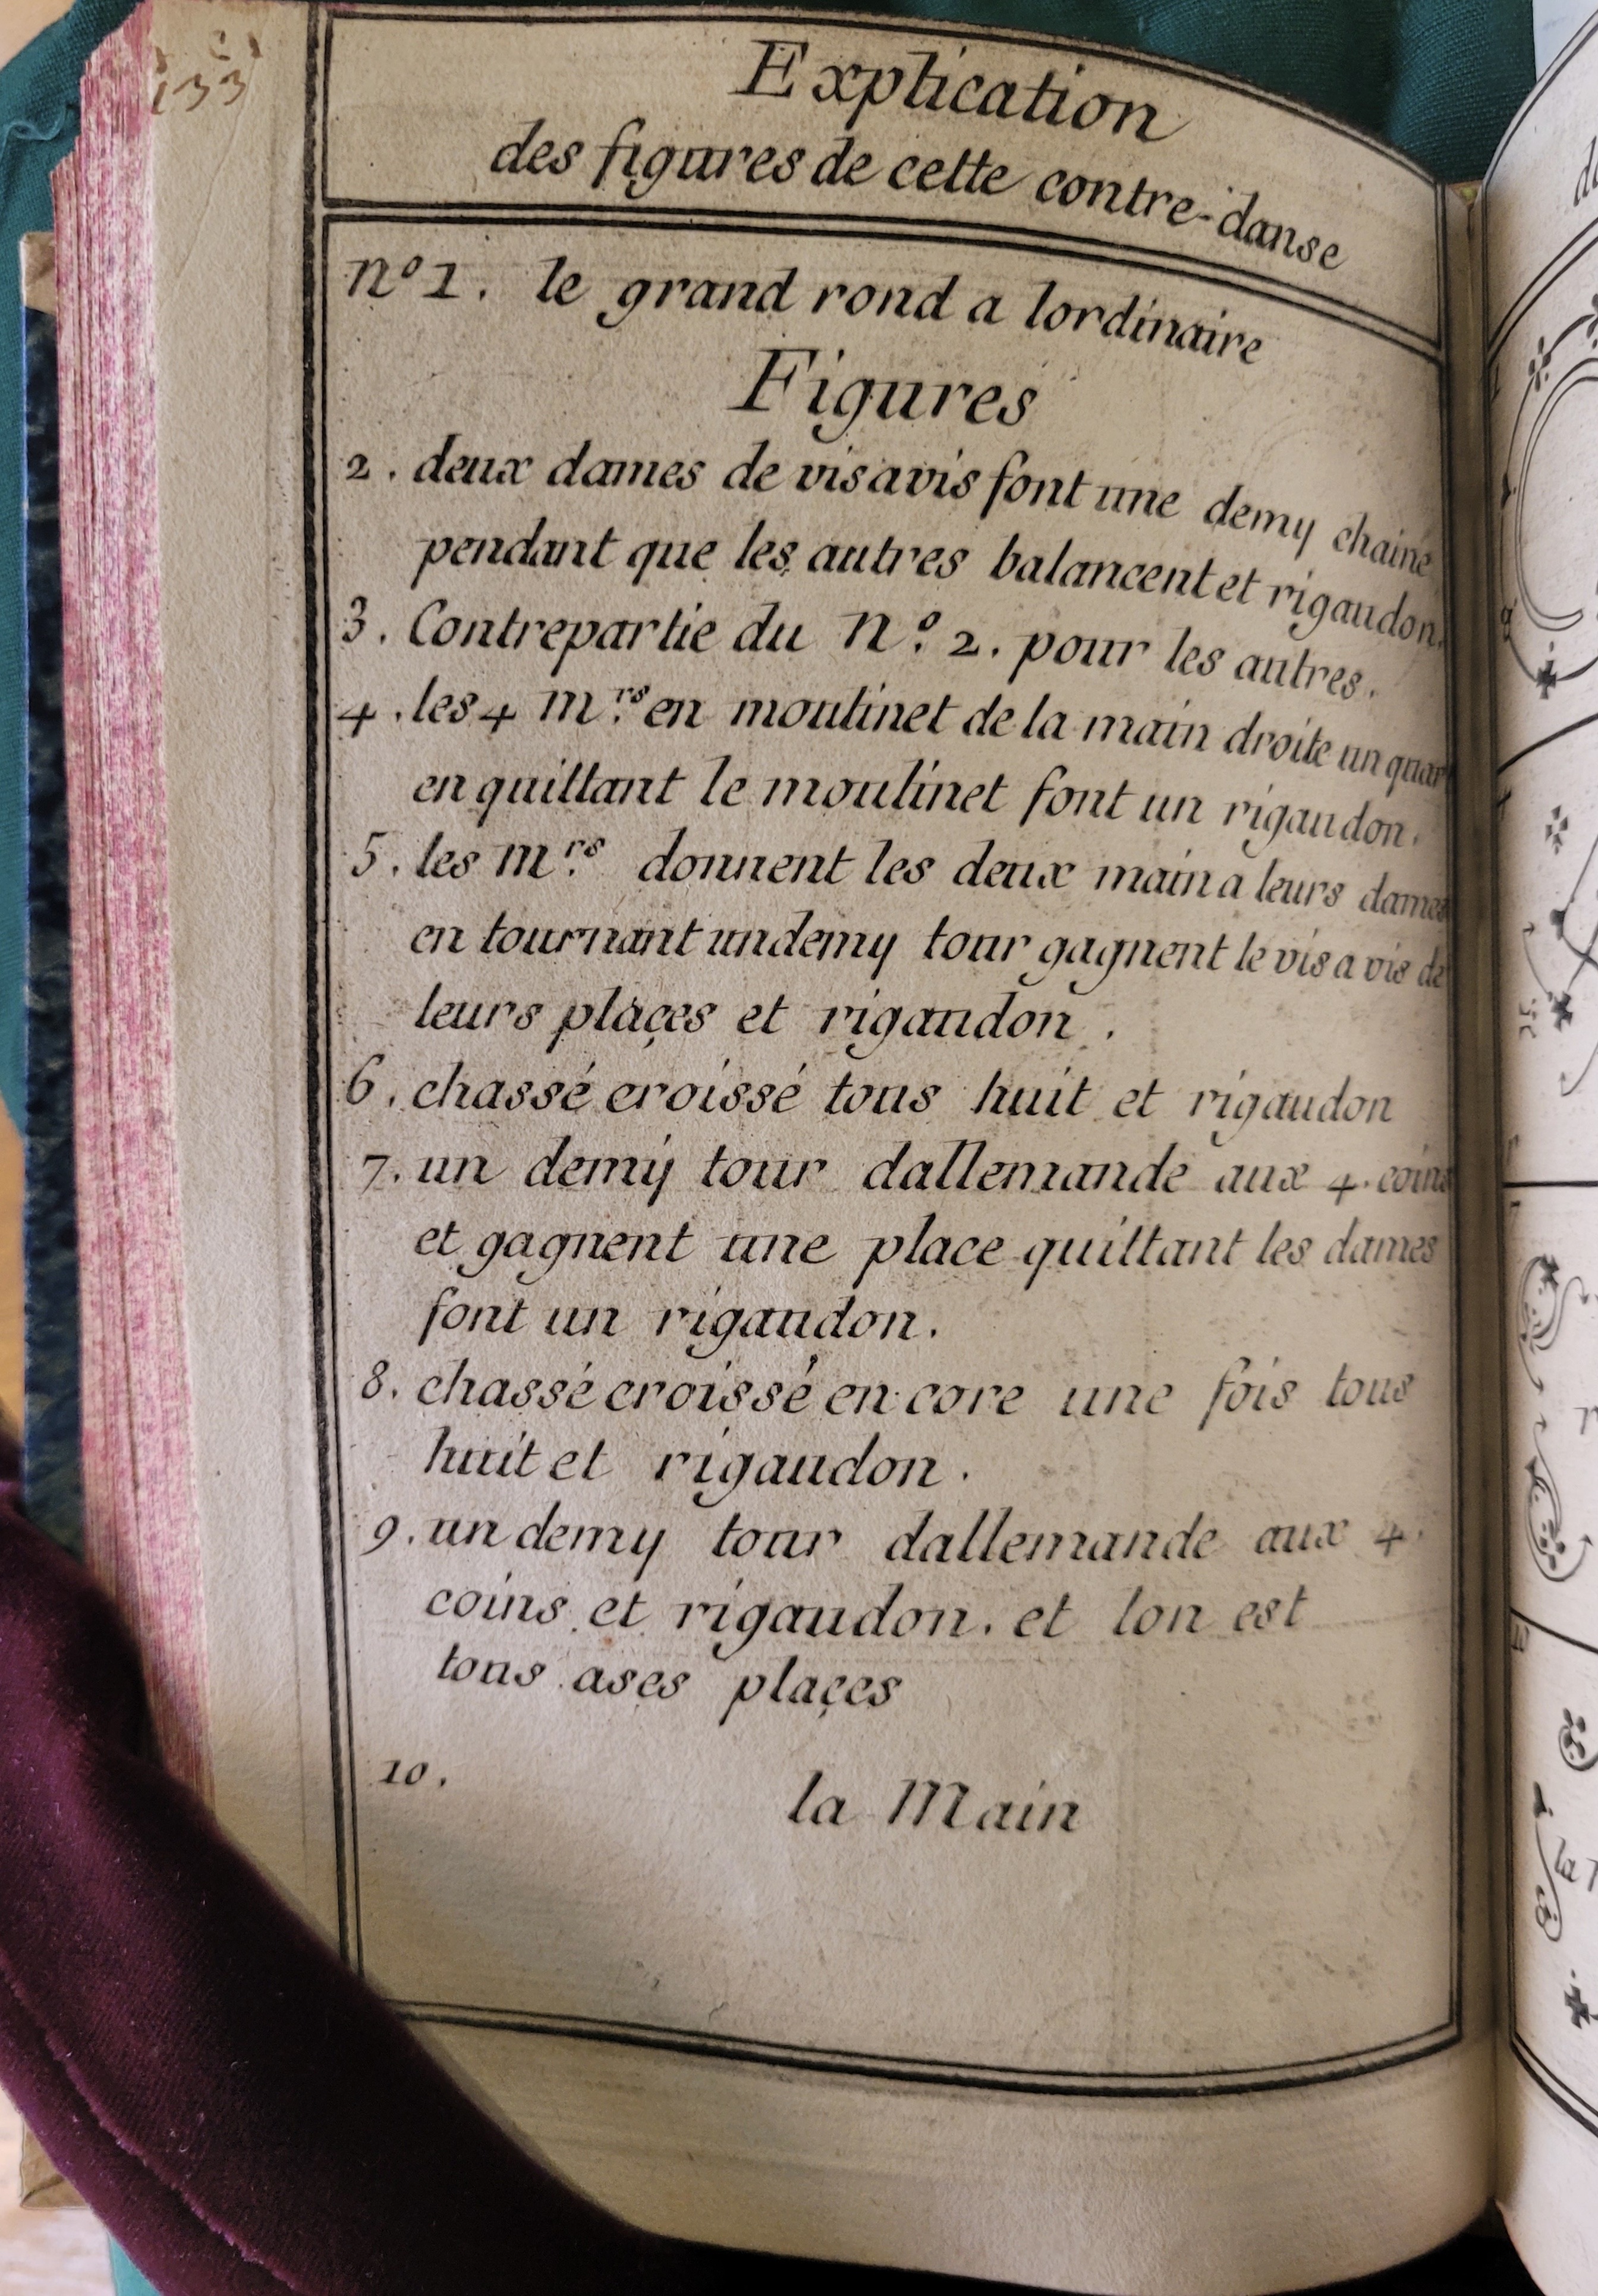 133
Explication
des figures de cette contre-danse
nº1. le grand rond a lordinaire
Figures
2. deux dames de visavis font une demy chaine
pendant que les autres balancent et rigaudon.
3. Contrepartie du Nº. 2. pour les autres.
4. les 4 m.rs en moulinet de la main droite un quar
en quittant le moulinet font un rigaudon.
5. les m.rs donnent les deux main a leurs dames
en tournant undemy tour gagnent le vis a vis de
leurs plaçes et rigaudon.
6. chassé croissé tous huit et rigaudon
7. un demy tour dallemande aux 4. coins
et gagnent une place quittant les dames
font un rigaudon.
8. chassé croissé encore une fois tous
huit et rigaudon.
9. un demy tour dallemande aux 4.
coins et rigaudon. et lon est
tous ases plaçes
10. la Main